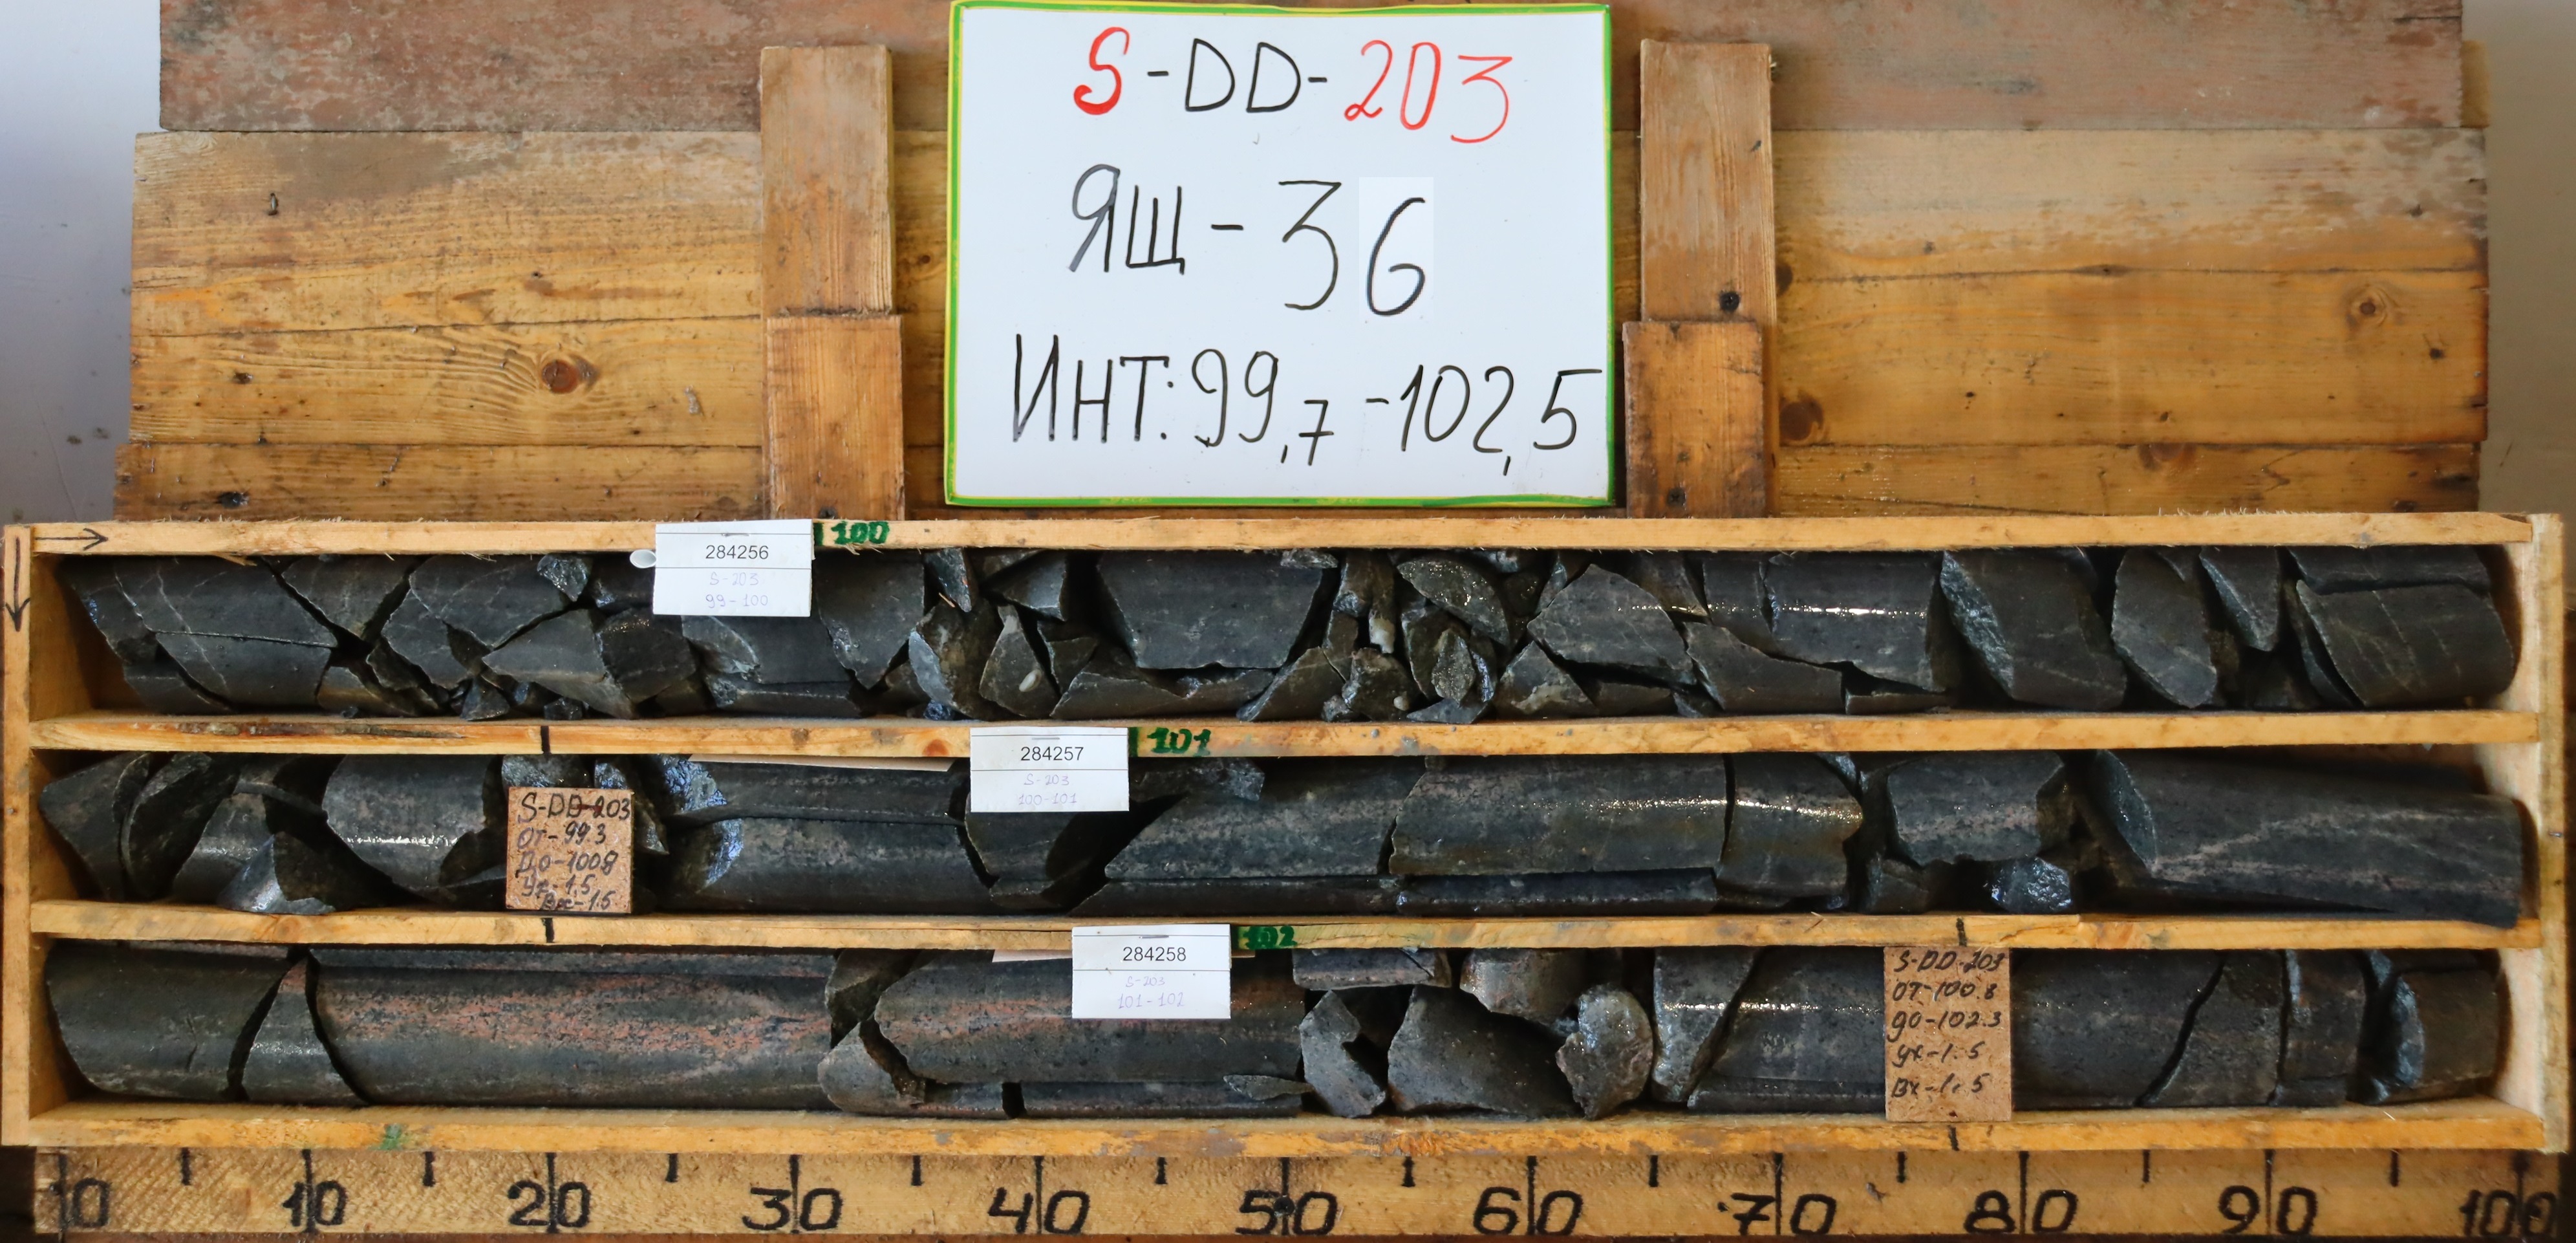 S-DD-203
ЯЩ-36
ИНТ:99,7-102,5
100
284256
S-203
99-100
101
284257
S-203
100-101
S-DD-203
От-99.3
До-100.8
Ух-1.5
Вых-1.5
102
284258
S-203
101-102
S-DD-203
от-100.8
до-102.3
ух-1.5
Вх-1.5
0 10 20 30 40 50 60 70 80 90 100